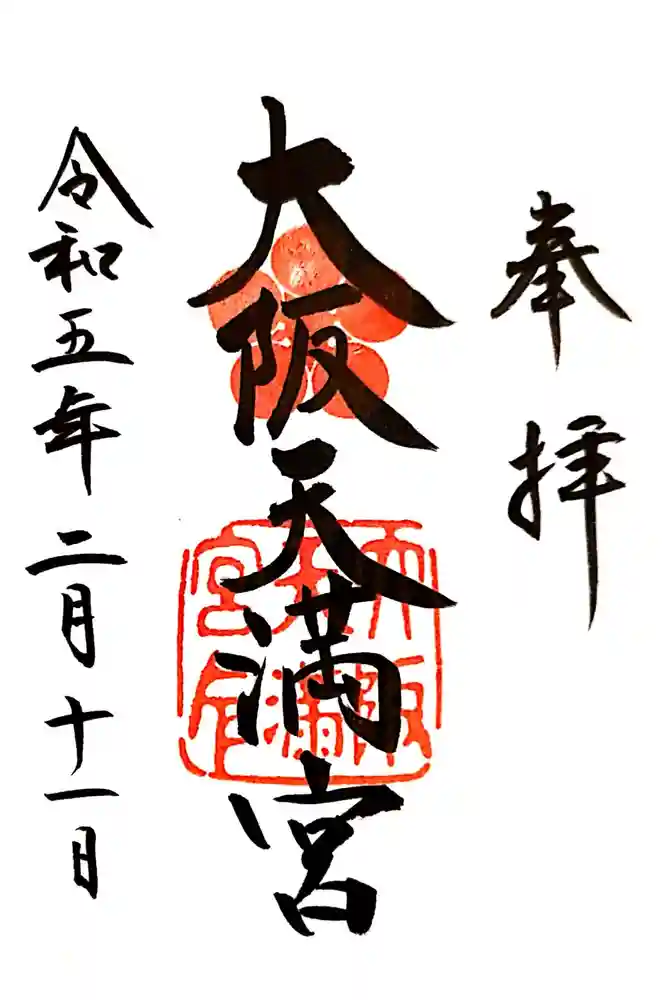 奉拝
大阪天満宮
令和五年二月十一日
大阪
天満
宮印